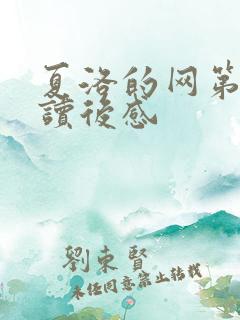 夏洛的网第
讀後感
劉東賢
未经同意禁止转载